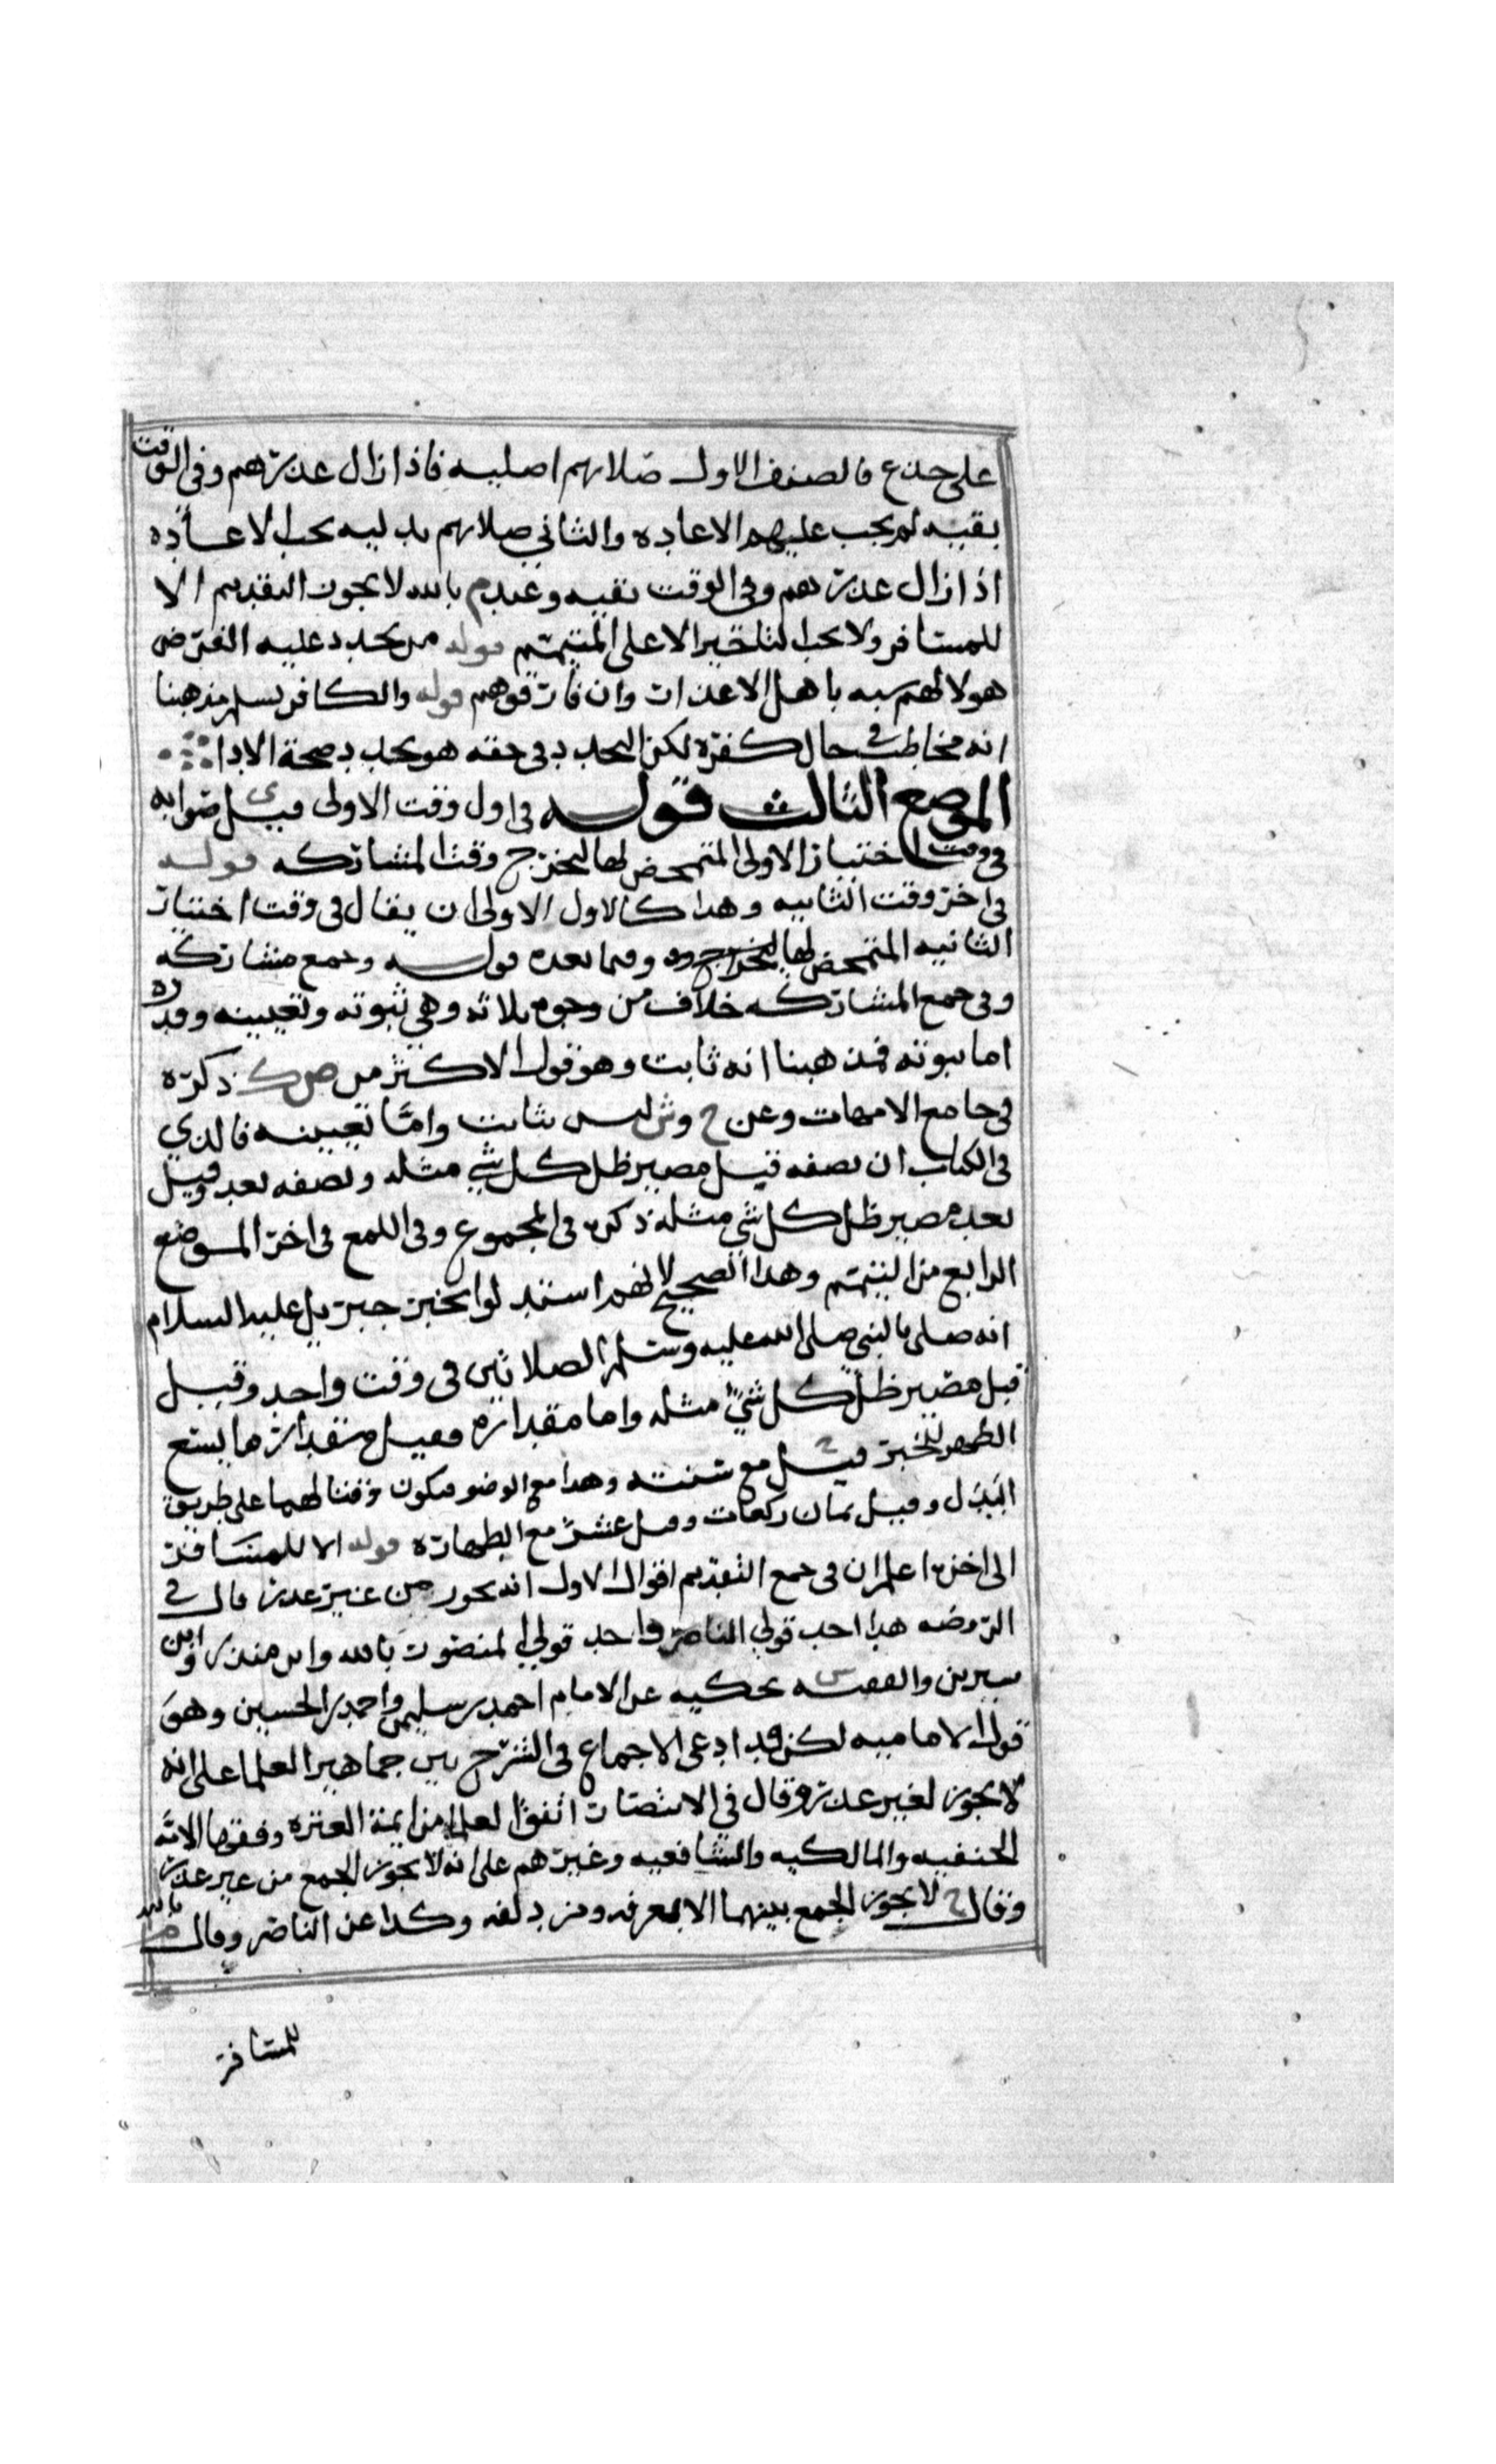 على جذع فالصنف الاول صلاتهم اصليه فاذا زال عذرهم وفي الوقت
بقيه لم يجب عليهم الاعاده والثاني صلاتهم بدليه يجب الاعاده
اذا زال عذرهم وفي الوقت بقيه وعند م بالله لا يجوز التقديم الا
للمسافر ولا يجب التاخير الا على المتيمم قوله من يجدد عليه الفرض
هولا لهم شبه باهل الاعذار وان فارقوهم قوله والكافر يسلم مذهبنا
انه مخاطب في حال كفره لكن التجدد في حقه هو تجدد صحة الادا
الموضع الثالث قوله في اول وقت الاولى قيل ى صوابه
في وقت اختيار الاولى المتمحض لها ليخرج وقت المشاركه قوله
في اخر وقت الثانيه وهذا كالاول الاولى ان يقال في وقت اختيار
الثانيه المتمحض لها وفيما بعده قوله وجمع مشاركه
وفي جمع المشاركه خلاف من وجوه ثلاثه وهي ثبوته وتعيينه وقدره
اما ثبوته فمذهبنا انه ثابت وهو قول الاكثر من ص ك ذكره
في جامع الامهات وعن ح وش ليس بثابت واما تعيينه فالذي
في الكتاب ان نصفه قبل مصير ظل كل شي مثله ونصفه بعد وقيل
بعد مصير ظل كل شي مثله ذكره في المجموع وفي اللمع في اخر الموضع
الرابع من التيمم وهذا الصحيح لانهم استدلوا بخبر جبريل عليه السلام
انه صلى بالنبي صلى الله عليه وسلم الصلاتين في وقت واحد وقيل
قبل مصير ظل كل شيً مثله واما مقداره فقيل مقدار ما يسع
الظهر للخبر قيل ح مع سنته وهذا مع الوضو فيكون وقتا لهما على طريق
البدل وقيل ثمان ركعات وقيل عشر مع الطهاره قوله الا للمسافر
الى اخره اعلم ان في جمع التقديم اقوال الاول انه يجوز من غير عذر قال في
الروضه هذا احد قولي الناصر واحد قولي المنصور بالله وابن منذر وابن
سيرين والفقيه س يحكيه عن الامام احمد بن سليمن واحمد بن الحسين وهو
قول الاماميه لكن قد ادعى الاجماع في الشرح بين جماهير العلما على انه
لا يجوز لغير عذر وقال في الانتصار اتفق العلما من ايمة العتره وفقها الامه
الحنفيه والمالكيه والشافعيه وغيرهم على انه لا يجوز الجمع من غير عذر
وقال ح لا يجوز الجمع بينهما الا بعرفه ومزدلفه وكذا عن الناصر وقال م بالله
للمسافر